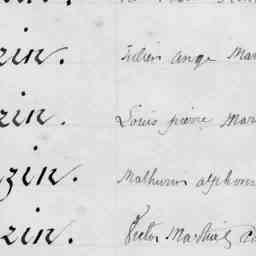 zin. Julien ange Mar
zin. Louis pierre Mar
zin. Mathurin alphons
zin. Victor Martial